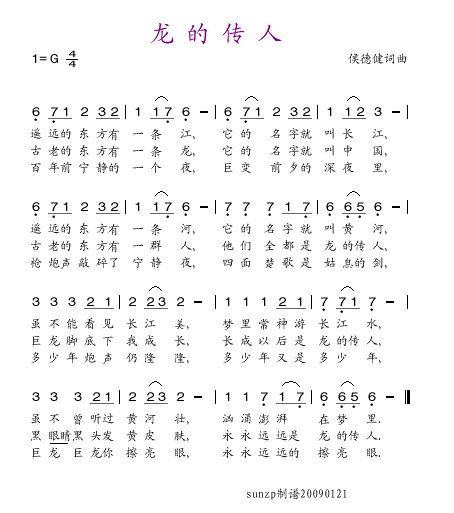 龙的传人
1=G 4/4 侯德健词曲
6 7 1 2 3 2 | 1 1 7 6 – | 6 7 1 2 3 2 | 1 1 2 3 – |
遥远的东方有 一条 江, 它的 名字就 叫长江,
古老的东方有 一条 龙, 它的 名字就 叫中 国,
百年前宁静的 一个 夜, 巨变 前夕的 深夜里,
6 7 1 2 3 2 | 1 1 7 6 – | 7 7 7 1 7 | 6 6 5 6 – |
遥远的东方有 一条 河, 它的 名字就 叫黄 河,
古老的东方有 一群 人, 他们 全都是 龙的传人,
枪炮声敲碎了 宁静 夜, 四面 楚歌是 姑息的剑,
3 3 3 2 1 | 2 2 3 2 – | 1 1 1 2 1 | 7 7 1 7 – |
虽不能看见 长江 美, 梦里常神游 长江 水,
巨龙脚底下 我成 长, 长成以后是 龙的传人,
多少年炮声 仍隆 隆, 多少年又是 多少 年,
3 3 3 2 1 | 2 2 3 2 – | 1 1 7 1 7 | 6 6 5 6 – ‖
虽不 曾听过 黄河 壮, 汹涌澎湃 在梦 里.
黑眼睛黑头发 黄皮 肤, 永永远远是 龙的传人.
巨龙巨龙你 擦亮 眼, 永永远远的 擦亮 眼.
sunzp制谱20090121